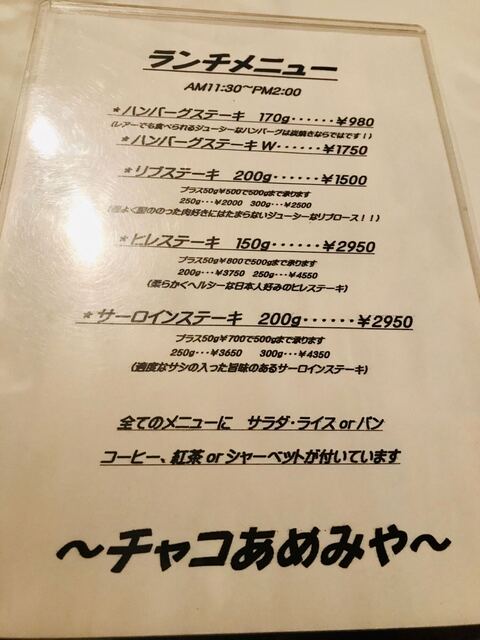 ランチメニュー
AM11:30〜PM2:00
★ハンバーグステーキ 170g・・・・・・¥980
(レアーでも食べられるジューシーなハンバーグは炭焼きならではです!)
★ハンバーグステーキW・・・・・¥1750
★リブステーキ 200g・・・・・・¥1500
プラス50g¥500で500gまで承ります
250g・・・¥2000 300g・・・¥2500
(程よく脂ののった肉好きにはたまらないジューシーなリブロース!!)
★ヒレステーキ 150g・・・・・・¥2950
プラス50g¥800で500gまで承ります
200g・・・¥3750 250g・・・¥4550
(柔らかくヘルシーな日本人好みのヒレステーキ)
★サーロインステーキ 200g・・・・・・¥2950
プラス50g¥700で500gまで承ります
250g・・・¥3650 300g・・・¥4350
(適度なサシの入った旨味のあるサーロインステーキ)
全てのメニューに サラダ・ライスorパン
コーヒー、紅茶orシャーベットが付いています
〜チャコあめみや〜